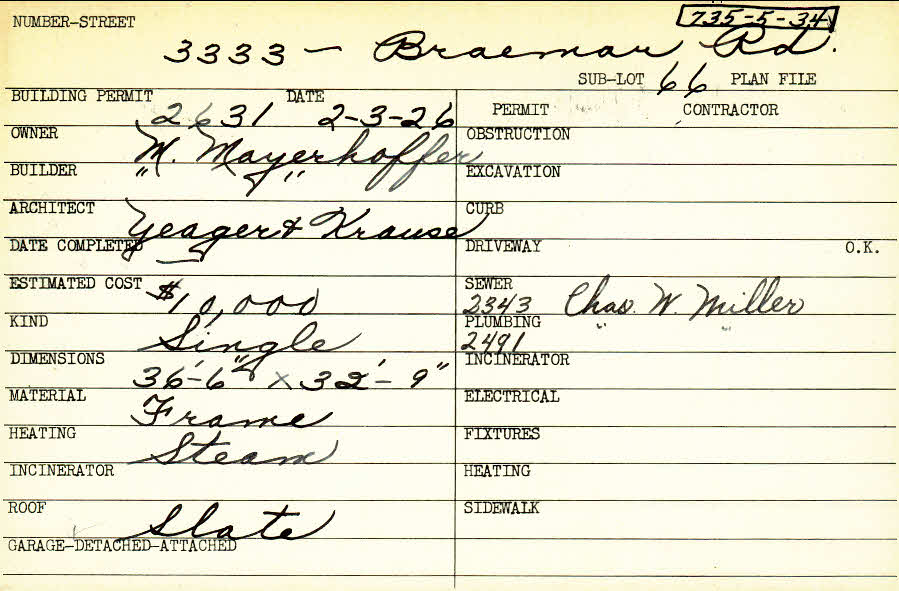 735-5-34
NUMBER-STREET
3333 - Braemar Rd.
SUB-LOT 66 PLAN FILE
BUILDING PERMIT DATE
2631 2-3-26
PERMIT CONTRACTOR
OWNER M. Mayerhoffer
OBSTRUCTION
BUILDER " "
EXCAVATION
ARCHITECT Yeager & Krause
CURB
DATE COMPLETED
DRIVEWAY O.K.
ESTIMATED COST $10,000
SEWER
2343 Chas. W. Miller
KIND Single
PLUMBING " "
2491
DIMENSIONS 36'-6" x 32'-9"
INCINERATOR
MATERIAL Frame
ELECTRICAL
HEATING Steam
FIXTURES
INCINERATOR
HEATING
ROOF Slate
SIDEWALK
GARAGE-DETACHED-ATTACHED